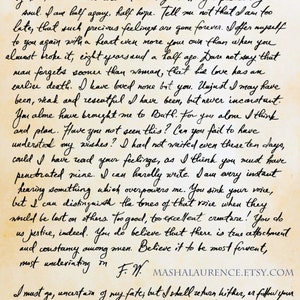 soul. I am half agony, half hope. Tell me not that I am too
late, that such precious feelings are gone forever. I offer myself
to you again with a heart even more your own than when you
almost broke it, eight years and a half ago. Dare not say that
man forgets sooner than woman, that his love has an
earlier death. I have loved none but you. Unjust I may have
been, weak and resentful I have been, but never inconstant.
You alone have brought me to Bath. For you alone I think
and plan. Have you not seen this? Can you fail to have
understood my wishes? I had not waited even these ten days,
could I have read your feelings, as I think you must have
penetrated mine. I can hardly write. I am every instant
hearing something which overpowers me. You sink your voice,
but I can distinguish the tones of that voice when they
would be lost on others. Too good, too excellent creature! You do
us justice, indeed. You do believe that there is true attachment
and constancy among men. Believe it to be most fervent,
most undeviating in
F. W.
MASHALAURENCE.ETSY.COM
I must go, uncertain of my fate; but I shall return hither, or follow your